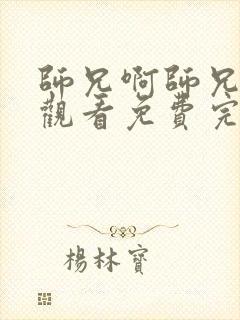 師兄啊師兄
觀看免費完
楊林寶